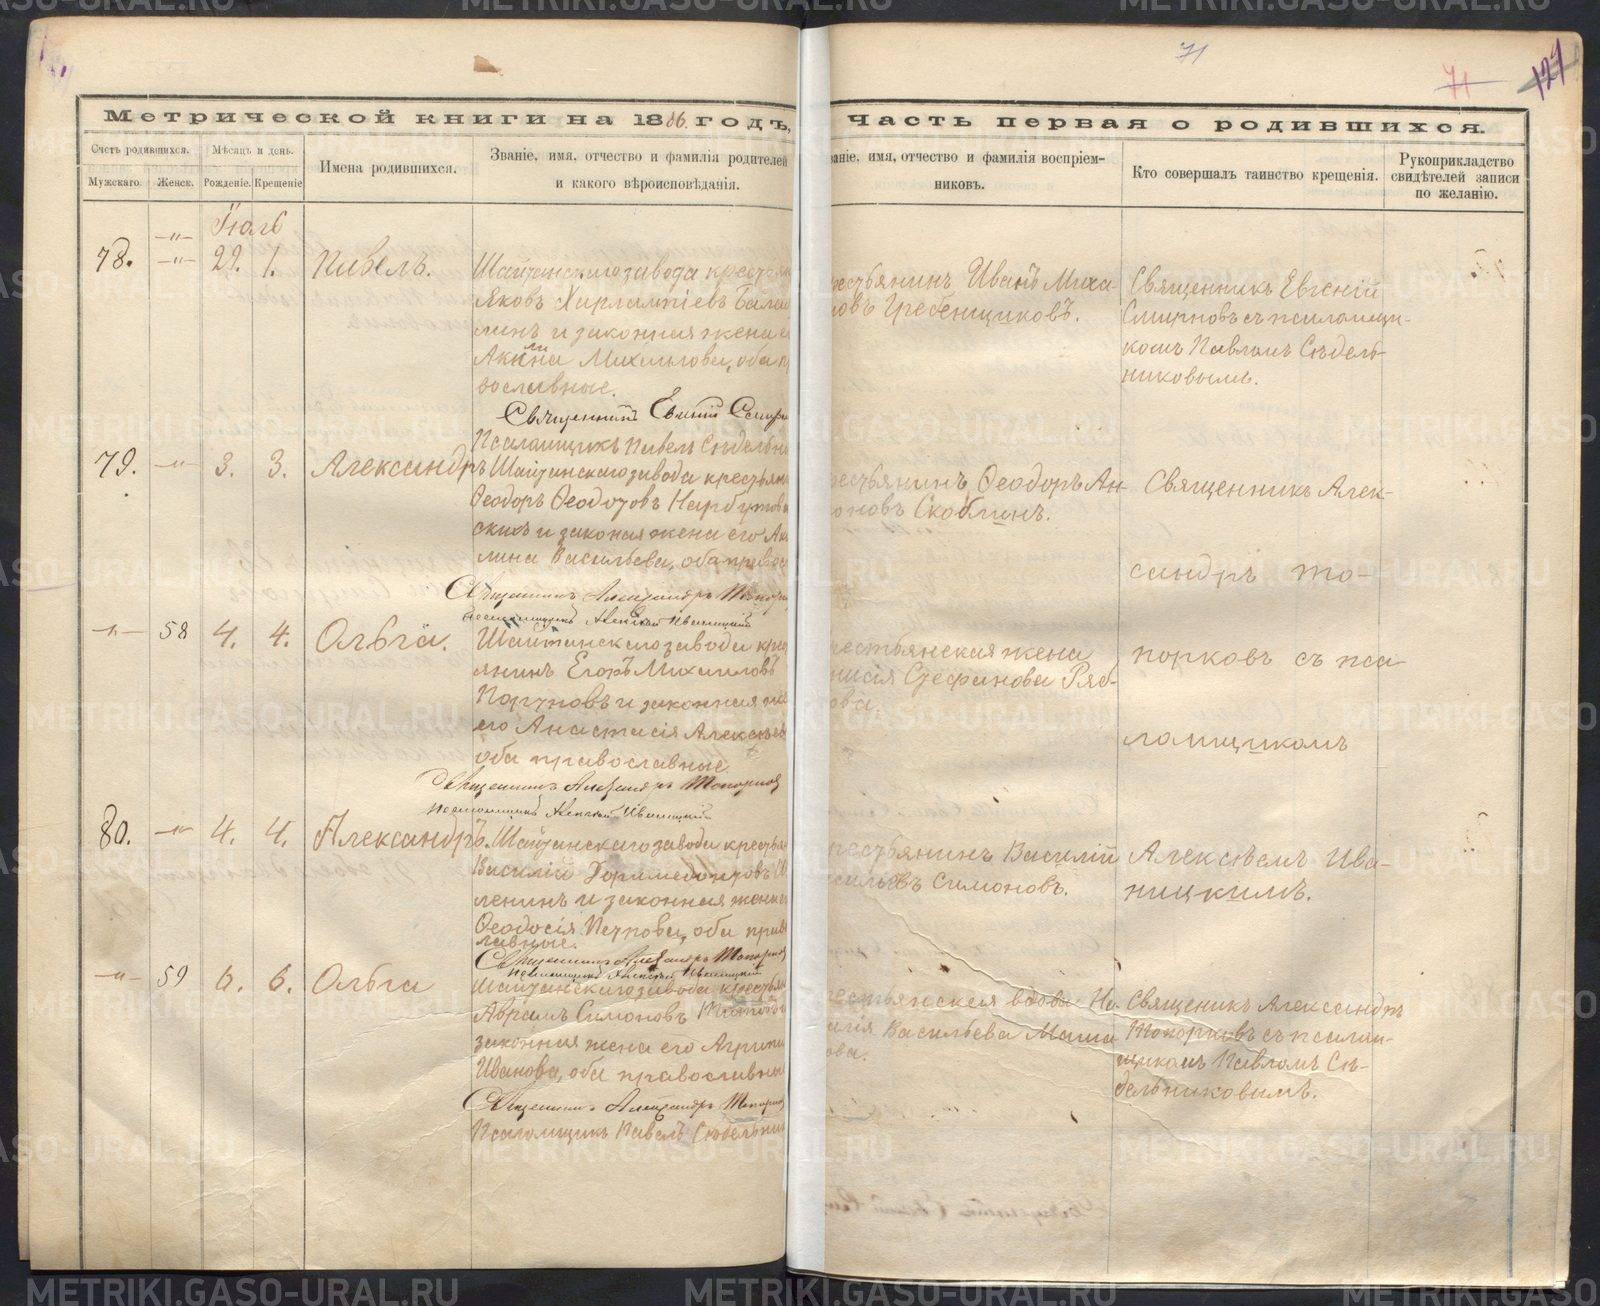 71
71
127
Метрической книги на 1886 годъ,
часть первая о родившихся.
Счетъ родившихся.
Мѣсяцъ и день.
Имена родившихся.
Званіе, имя, отчество и фамилія родителей
и какого вѣроисповѣданія.
Мужскаго.
Женск.
Рожденіе.
Крещеніе
аніе, имя, отчество и фамилія воспріем-
никовъ.
Кто совершалъ таинство крещенія.
Рукоприкладство
свидѣтелей записи
по желанію.
Іюль
78. -"- 29. 1. Павелъ.
Шайтанскаго завода крестьян
Яковъ Харлампіевъ Бала
линъ и законная жена е
Акилина Михайлова, оба п
вославные.
Священникъ Евгеній Смирн
Псаломщикъ Павелъ Сѣдельни
рестьянинъ Иванъ Миха-
ловъ Гребенщиковъ.
Священникъ Евгеній
Смирновъ съ псаломщи-
комъ Павломъ Сѣдель-
никовымъ.
79. -"- 3. 3. Александръ
Шайтанскаго завода крестьяни
Ѳеодоръ Ѳеодотовъ Нарбутов
скихъ и законая жена его Аки
лина Васильева, оба правос
Священникъ Александръ Топорк
Псаломщикъ Алексѣй Иваницкій
рестьянинъ Ѳеодоръ Ан
оновъ Скоблинъ.
Священникъ Алек-
сандръ То-
-"- 58 4. 4. Ольга.
Шайтанскаго завода крес
янинъ Егоръ Михаиловъ
и законная же
его Анастасія Алексѣев
оба православные
Священникъ Александръ Топорков
Псаломщикъ Алексѣй Иваницкій
рестьянская жена
нисія Стефанова Ряб-
ова.
порковъ съ пса-
ломщикомъ
80. -"- 4. 4. Александръ.
Шайтанскаго завода крестья
Василій Доримедонтовъ
ленинъ и законная жена е
Ѳеодосія Петрова, оба прав
лавные.
Священникъ Александръ Топорков
Псаломщикъ Алексѣй Иваницкій
рестьянинъ Василій
сильевъ Симоновъ.
Алексѣемъ Ива-
ницкимъ.
-"- 59 6. 6. Ольга
Шайтанскаго завода крестья
Аврамъ Симоновъ
законная жена его Агрипи
Иванова, оба православны
Священникъ Александръ Топорков
Псаломщикъ Павелъ Сѣдельник
рестьянская вдова На
алія Васильева Мама
ова.
Священикъ Александръ
Топорковъ съ псалом-
щикомъ Павломъ Сѣ-
дельниковымъ.
METRIKI.GASO-URAL.RU